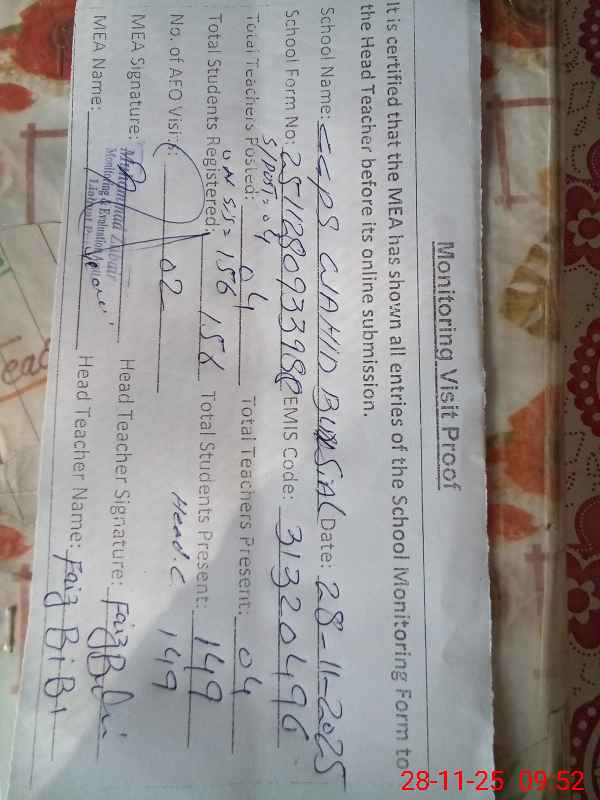 Monitoring Visit Proof
It is certified that the MEA has shown all entries of the School Monitoring Form to
the Head Teacher before its online submission.
School Name: GGPS WAHID BUX SiAL Date: 28-11-2025
School Form No: EMIS Code: 31320496
S/POST = 04
Total Teachers Posted: 04 Total Teachers Present: 04
ON SIS = 156
Total Students Registered: 158 Total Students Present: 149
Head.C 149
No. of AEO Visits: 02
MEA Signature: Head Teacher Signature: Faiz BiBi
Monitoring & Evaluation
MEA Name: Head Teacher Name: Faiz BiBi
28-11-25 09:52